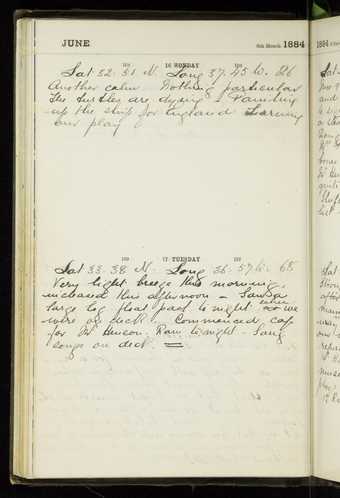 JUNE 6th Month 1884
16 MONDAY
Lat 32. 51 N. Long 37. 45 W. 86
Another calm. Nothing particular
The turtles are dying. Painting
up the ship for England. Learning
our play
17 TUESDAY
Lat 33. 38 N. Long 36. 57 W. 68
Very light breeze this morning,
increased this afternoon - Saw a
large log float past to night when we
were on deck. Commenced cap
for Mr Henson. Rain to night. Sang
songs on deck.
1884